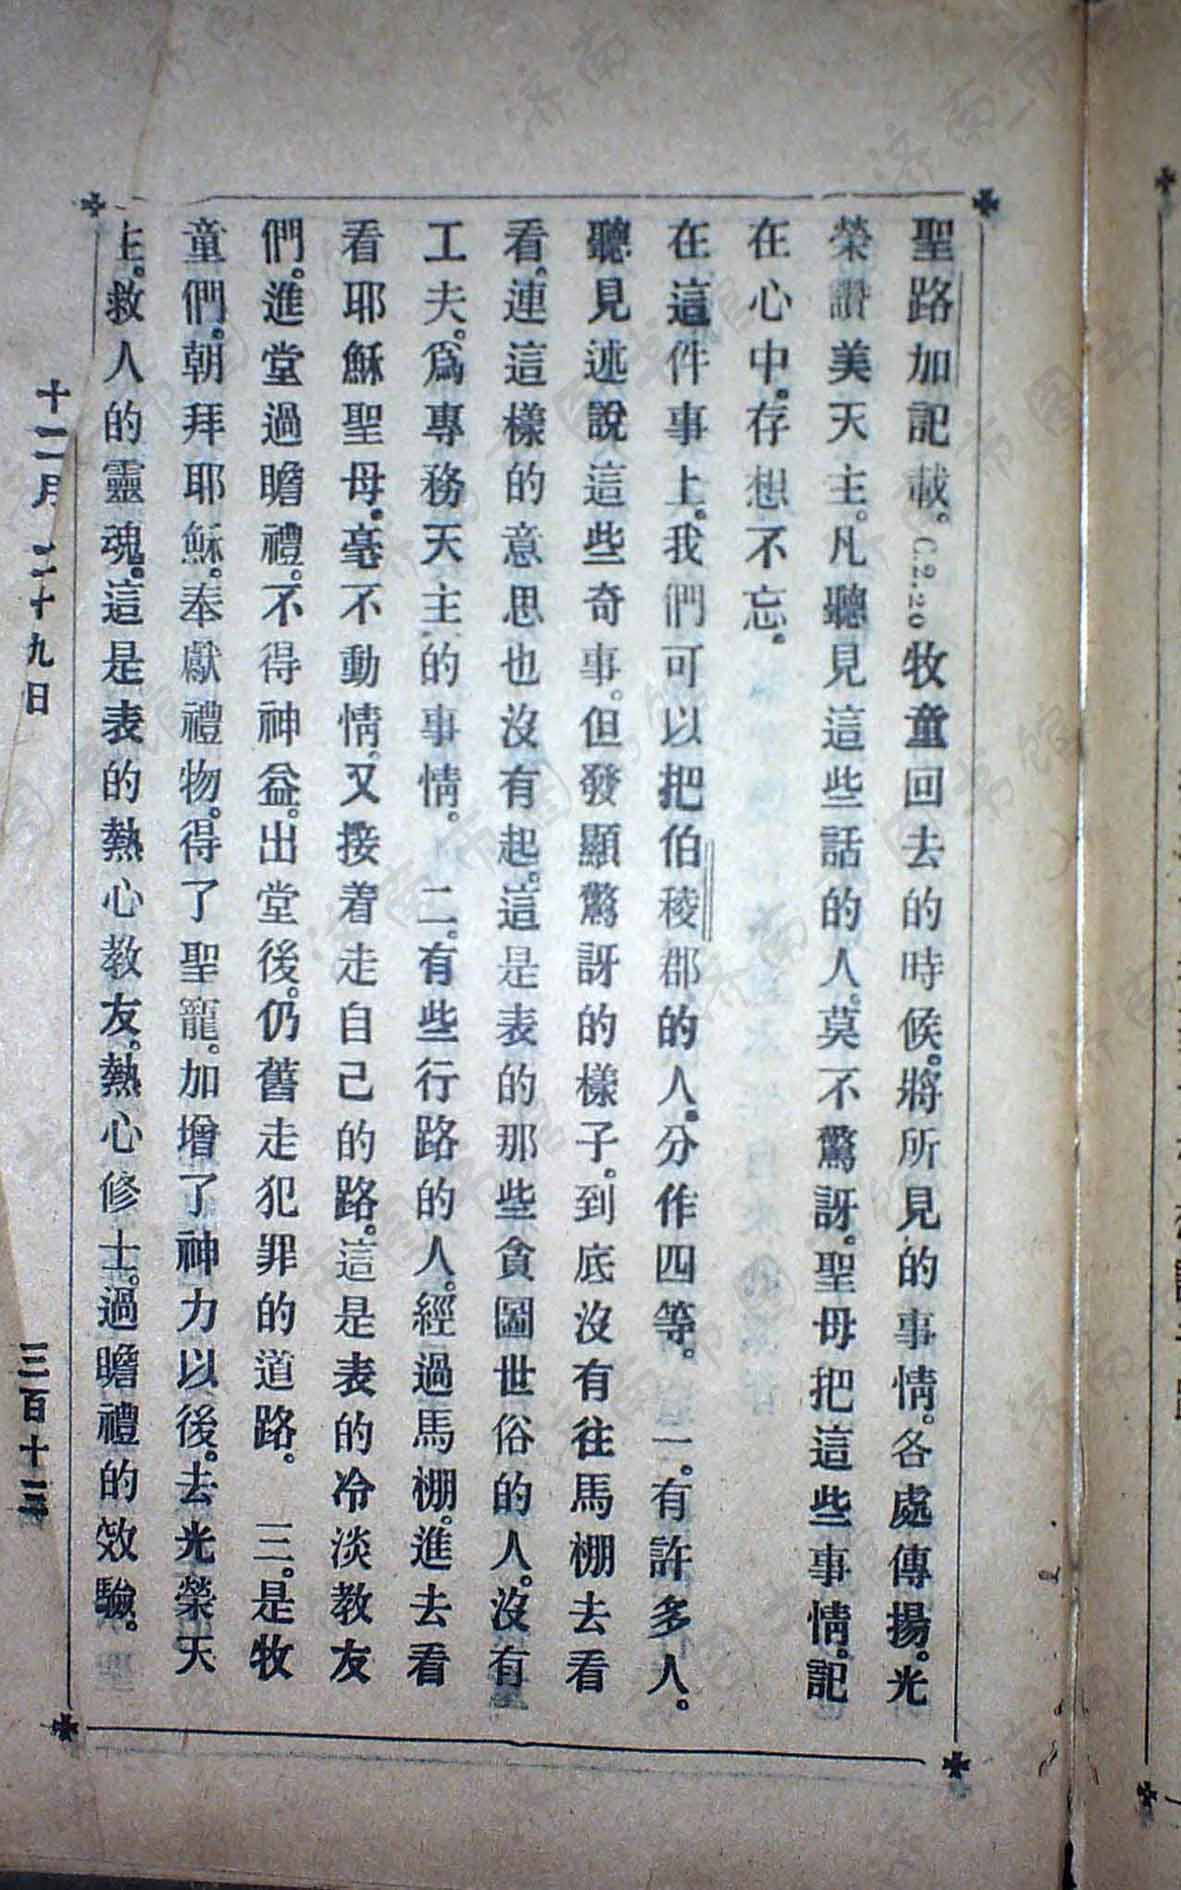 聖路加記載。C.2.20牧童回去的時候。將所見的事情。各處傳揚。光
榮讚美天主。凡聽見這些話的人。莫不驚訝。聖母把這些事情。記
在心中。存想不忘。
在這件事上。我們可以把伯稜郡的人。分作四等。一。有許多人。
聽見述說這些奇事。但發顯驚訝的樣子。到底沒有往馬棚去看
看。連這樣的意思也沒有起。這是表的那些貪圖世俗的人。沒有
工夫。爲專務天主的事情。二。有些行路的人。經過馬棚。進去看
看耶穌聖母。毫不動情。又接着走自己的路。這是表的冷淡教友
們。進堂過瞻禮。不得神益。出堂後。仍舊走犯罪的道路。三。是牧
童們。朝拜耶穌。奉獻禮物。得了聖寵。加增了神力以後。去光榮天
主。救人的靈魂。這是表的熱心教友。熱心修士。過瞻禮的效驗。
十二月二十九日 三百十三
济南市图书馆